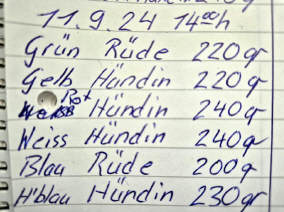 11.9.24 14⁰⁰h
Grün Rüde 220gr
Gelb Hündin 220g
Rot Hündin 240g
Weiss Hündin 240g
Blau Rüde 200g
H'blau Hündin 230gr